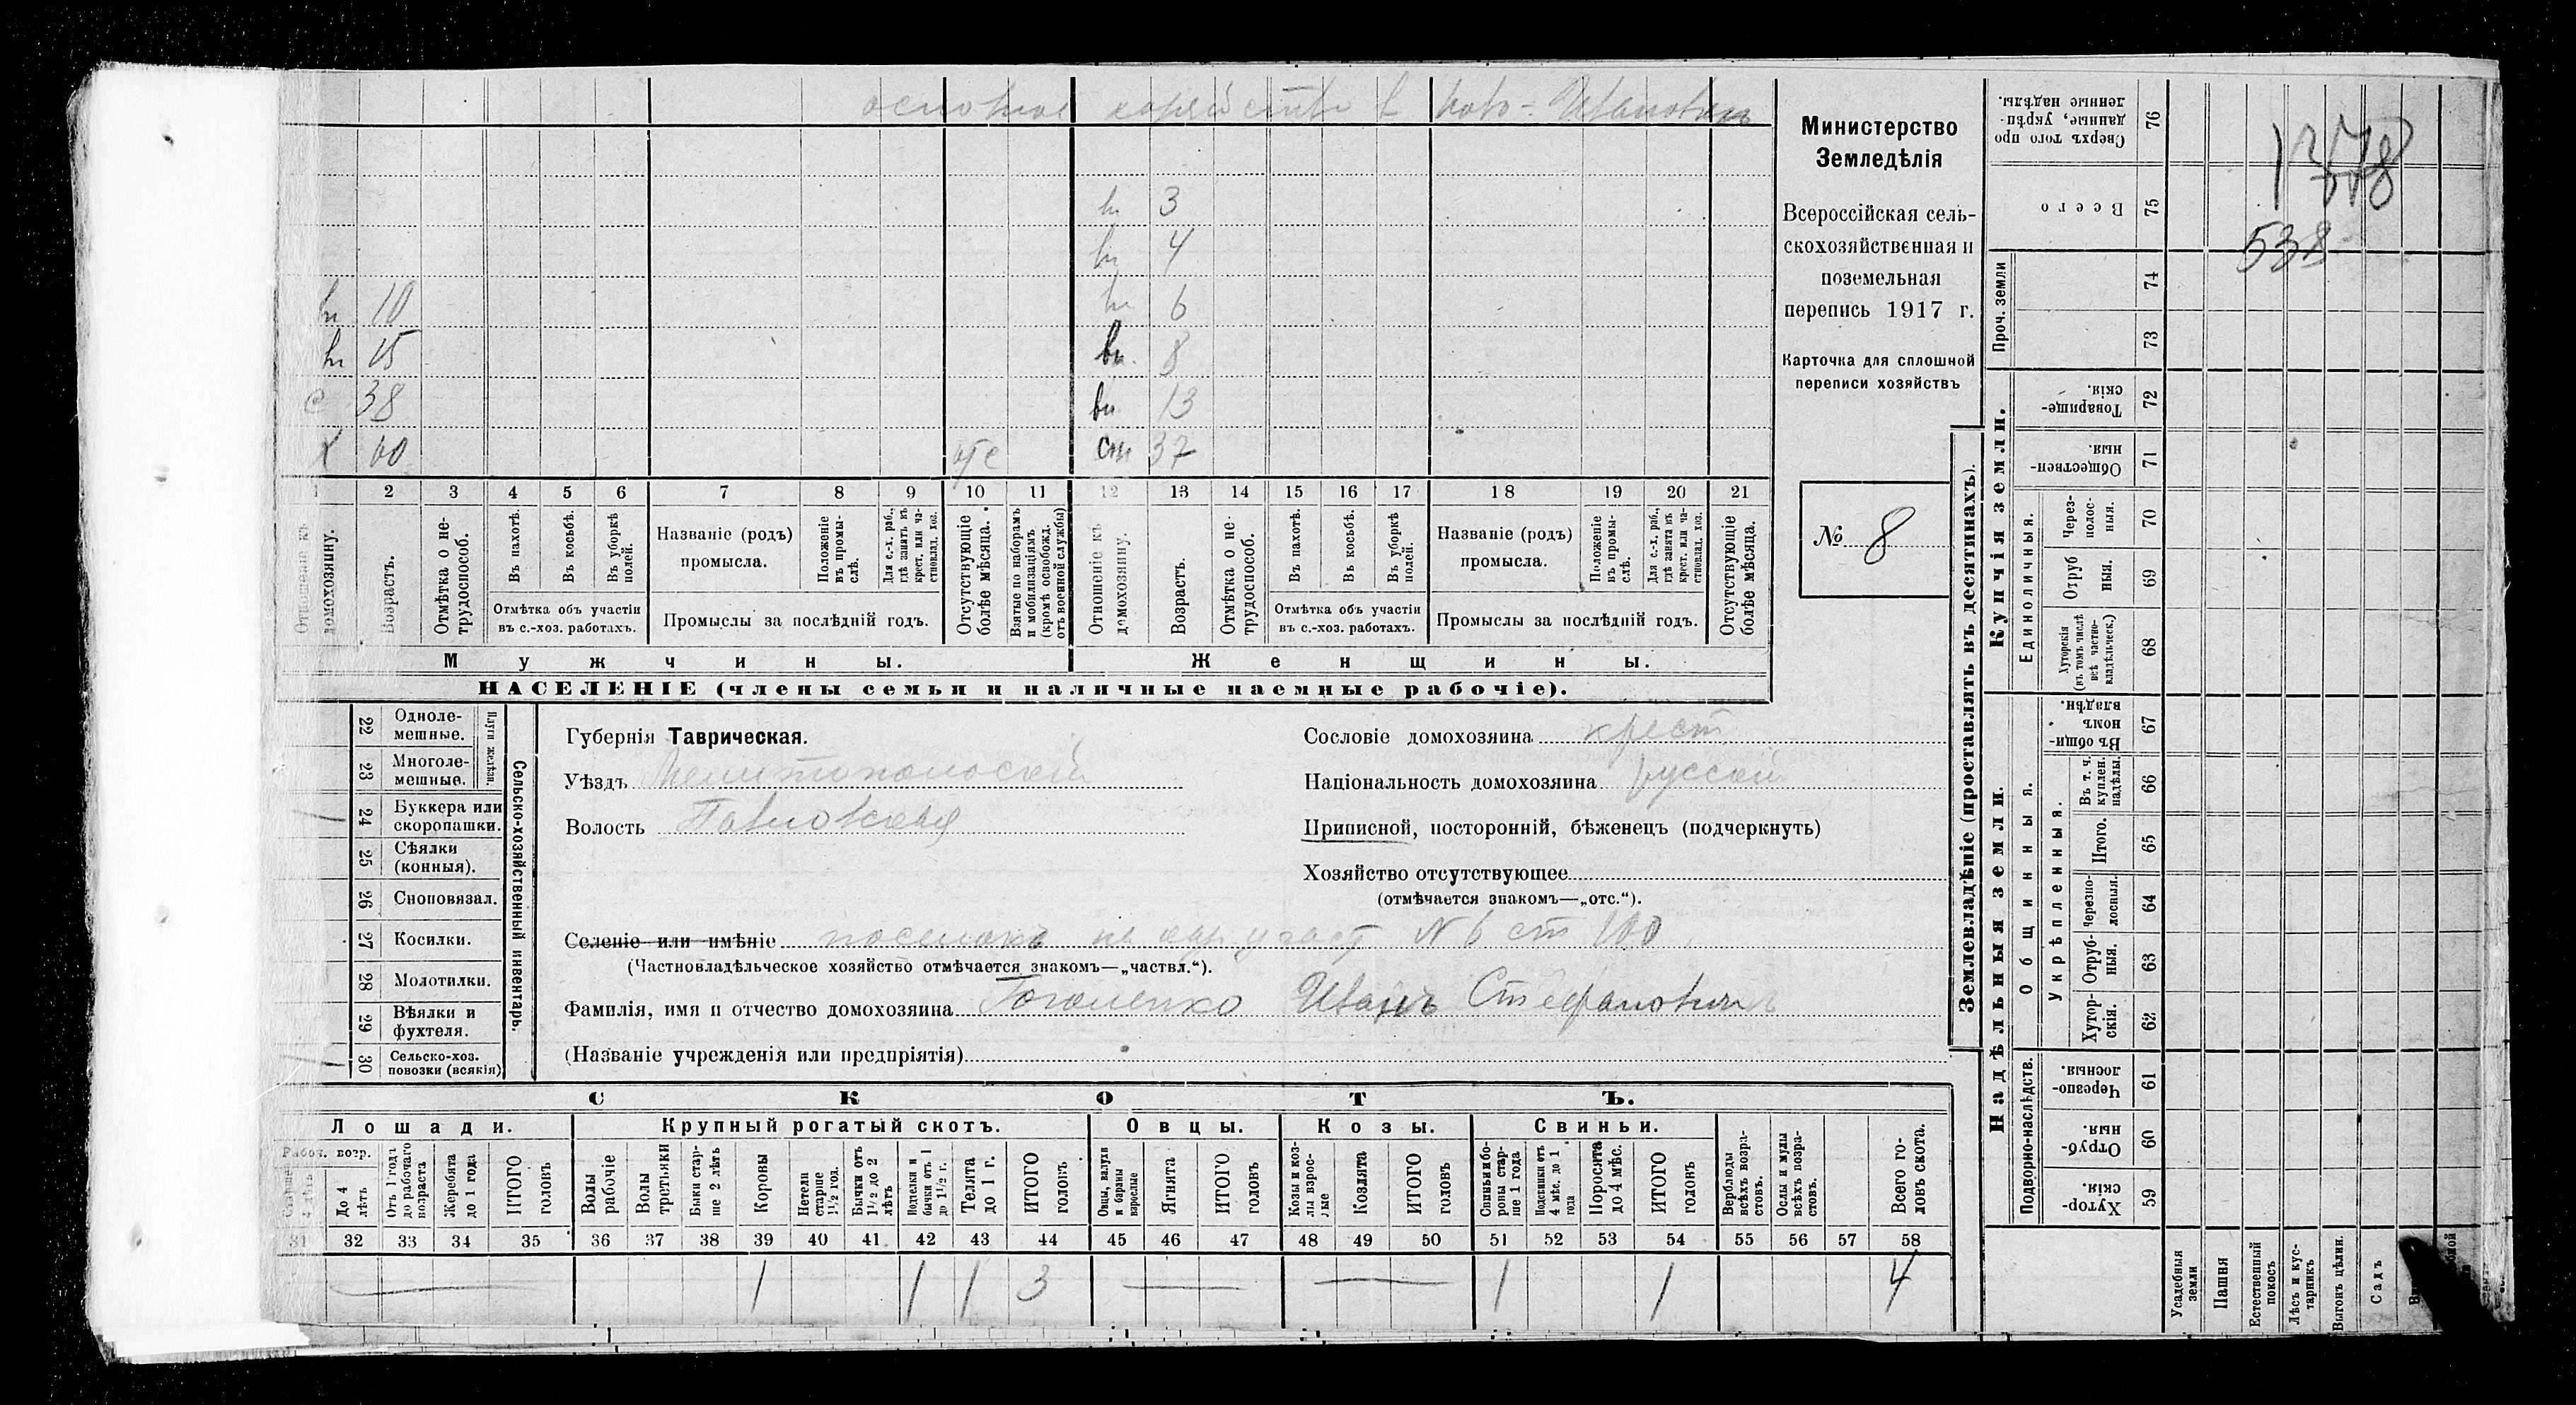 основное хозяйство в Ново-Ивановкѣ
вн 3
вн 4
вн 10 вн 6
вн 15 вн 8
с 38 вн 13
х 60 отс сн 37
1 2 3 4 5 6 7 8 9 10 11 12 13 14 15 16 17 18 19 20 21
Отношеніе къ домохозяину.
Возрастъ.
Отмѣтка о нетрудоспособ.
Въ пахотѣ.
Въ косьбѣ.
Въ уборкѣ полей.
Отмѣтка объ участіи въ с.-хоз. работахъ.
Названіе (родъ) промысла.
Положеніе въ промыслѣ.
Для с.-х. раб., гдѣ занятъ въ крест. или частновлад. хоз.
Промыслы за послѣдній годъ.
Отсутствующіе болѣе мѣсяца.
Взятые по наборамъ и мобилизаціямъ (кромѣ освобожд. отъ военной службы)
Отношеніе къ домохозяину.
Возрастъ.
Отмѣтка о нетрудоспособ.
Въ пахотѣ.
Въ косьбѣ.
Въ уборкѣ полей.
Отмѣтка объ участіи въ с.-хоз. работахъ.
Названіе (родъ) промысла.
Положеніе въ промыслѣ.
Для с.-х. раб., гдѣ занята въ крест. или частновлад. хоз.
Промыслы за послѣдній годъ.
Отсутствующіе болѣе мѣсяца.
Мужчины. Женщины.
НАСЕЛЕНІЕ (члены семьи и наличные наемные рабочіе).
Министерство
Земледѣлія
Всероссійская сель-
скохозяйственная и
поземельная
перепись 1917 г.
Карточка для сплошной
переписи хозяйствъ
№ 8
22 Одноле-
мешные.
23 Многоле-
мешные.
Плуги желѣзн.
24 Буккера или
скоропашки.
25 Сѣялки
(конныя).
26 Сноповязал.
27 Косилки.
28 Молотилки.
29 Вѣялки и
фухтеля.
30 Сельско-хоз.
повозки (всякія)
Сельско-хозяйственный инвентарь.
Губернія Таврическая.
Уѣздъ Мелитопольскій
Волость Павловская
Сословіе домохозяина крест
Національность домохозяина русскій
Приписной, посторонній, бѣженецъ (подчеркнуть)
Хозяйство отсутствующее
(отмѣчается знакомъ—„отс.“).
Селеніе или имѣніе поселокъ на участ N 6 ст 100
(Частновладѣльческое хозяйство отмѣчается знакомъ—„частвл.“).
Фамилія, имя и отчество домохозяина Гоголенко Иванъ Стефановичъ
(Названіе учрежденія или предпріятія)
СКОТЪ.
Лошади. Крупный рогатый скотъ. Овцы. Козы. Свиньи.
Рабоч. возр.
До 4 лѣтъ
Отъ 1 года до рабочаго возраста
Жеребята до 1 года
ИТОГО головъ
Волы рабочіе
Волы третьяки
Быки старше 2 лѣтъ
Коровы
Нетели старше 1½ год.
Бычки отъ 1½ до 2 лѣтъ
Подтелки и бычки отъ 1 до 1½ г.
Телята до 1 г.
ИТОГО головъ
Овцы, валухи и бараны взрослые
Ягнята
ИТОГО головъ
Козы и козлы взрослые
Козлята
ИТОГО головъ
Свиньи и боровы старше 1 года
Подсвинки отъ 4 мѣс. до 1 года
Поросята до 4 мѣс.
ИТОГО головъ
Верблюды всѣхъ возрастовъ.
Ослы и мулы всѣхъ возрастовъ.
Всего головъ скота.
31 32 33 34 35 36 37 38 39 40 41 42 43 44 45 46 47 48 49 50 51 52 53 54 55 56 57 58
1 1 1 3 1 1 4
Землевладѣніе (проставлять въ десятинахъ).
Купчія земли.
Надѣльныя земли.
Сверхъ того проданные, укрѣпленные надѣлы. 76
Всего 75
Проч. земли 74 73
Товарищескія. 72
Общественныя. 71
Единоличныя.
Черезполосныя. 70
Отрубныя. 69
Хуторскія (въ томъ числѣ всѣ частновладѣльческ.) 68
Общинныя.
Въ общинномъ владѣн. 67
Укрѣпленныя.
Въ т. ч. куплен. надѣлы. 66
Итого. 65
Черезполосныя. 64
Отрубныя. 63
Хуторскія. 62
Подворно-наслѣдств.
Черезполосныя 61
Отрубныя. 60
Хуторскія. 59
Усадебныя земли
Пашня
Естественный покосъ
Лѣсъ и кустарникъ
Выгонъ цѣлин.
Садъ
538